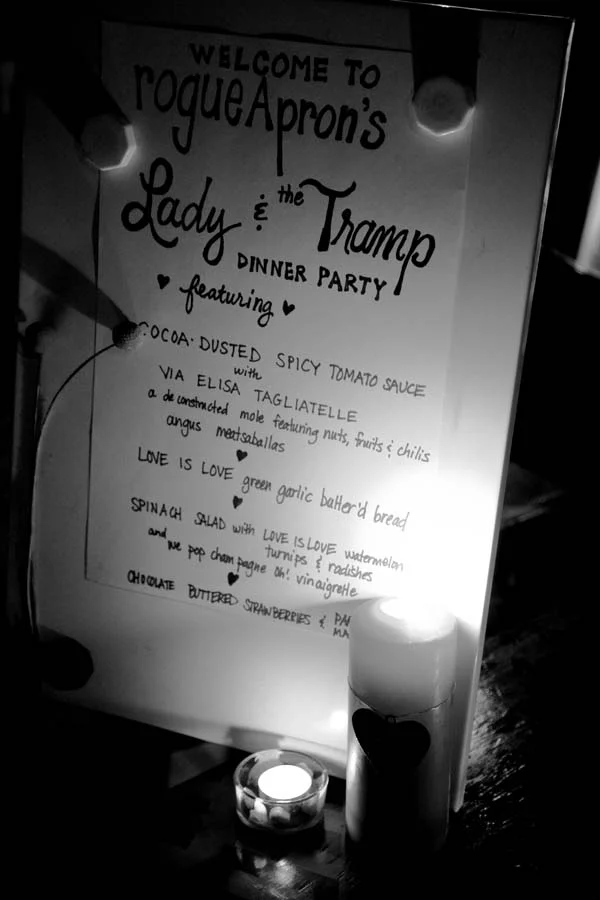 WELCOME TO
rogueApron's
Lady & the Tramp
DINNER PARTY
featuring
COCOA-DUSTED SPICY TOMATO SAUCE
with
VIA ELISA TAGLIATELLE
a deconstructed mole featuring nuts, fruits & chilis
angus meatsaballas
LOVE IS LOVE green garlic butter'd bread
SPINACH SALAD with LOVE IS LOVE watermelon
turnips & radishes
and we pop champagne oh! vinaigrette
CHOCOLATE BUTTERED STRAWBERRIES &